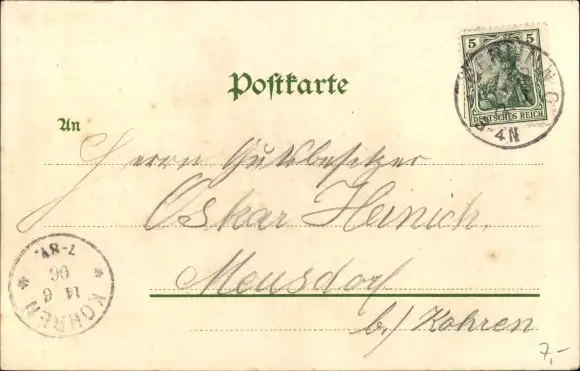 Postkarte
5 5
DEUTSCHES REICH
BERLIN W.
4N
An
Herrn Gutsbesitzer
Oskar Heinich,
Meusdorf
b./ Kohren
7-8V.
06
14 6
* KOHREN *
7,-